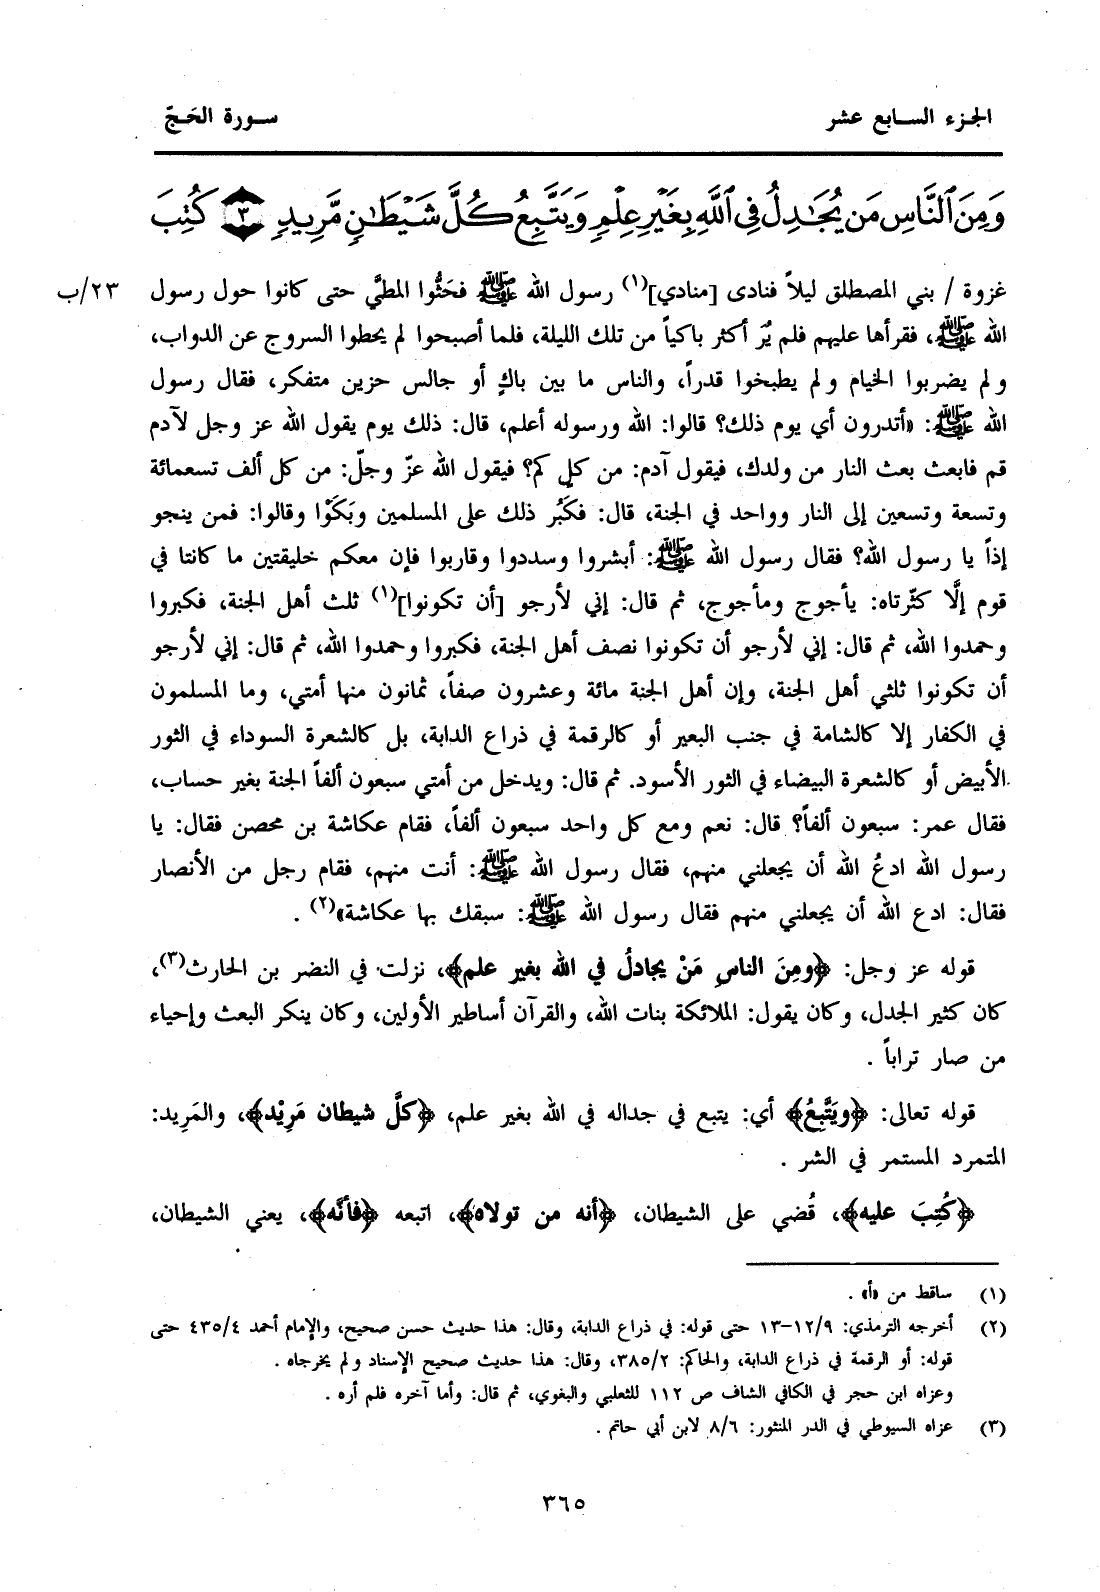 الجزء السابع عشر
سورة الحَجّ
وَمِنَ ٱلنَّاسِ مَن يُجَـٰدِلُ فِى ٱللَّهِ بِغَيْرِ عِلْمٍ وَيَتَّبِعُ كُلَّ شَيْطَـٰنٍ مَّرِيدٍ ﴿٣﴾ كُتِبَ
غزوة / بني المصطلق ليلاً فنادى [منادي](١) رسول الله ﷺ فحَثُّوا المطيَّ حتى كانوا حول رسول
٢٣/ب
الله ﷺ، فقرأها عليهم فلم يُرَ أكثر باكياً من تلك الليلة، فلما أصبحوا لم يحطوا السروج عن الدواب،
ولم يضربوا الخيام ولم يطبخوا قدراً، والناس ما بين باكٍ أو جالس حزين متفكر، فقال رسول
الله ﷺ: «أتدرون أي يوم ذلك؟ قالوا: الله ورسوله أعلم، قال: ذلك يوم يقول الله عز وجل لآدم
قم فابعث بعث النار من ولدك، فيقول آدم: من كل كم؟ فيقول الله عزّ وجلّ: من كل ألف تسعمائة
وتسعة وتسعين إلى النار وواحد في الجنة، قال: فكَبُر ذلك على المسلمين وبَكَوْا وقالوا: فمن ينجو
إذاً يا رسول الله؟ فقال رسول الله ﷺ: أبشروا وسددوا وقاربوا فإن معكم خليقتين ما كانتا في
قوم إلَّا كثّرتاه: يأجوج ومأجوج، ثم قال: إني لأرجو [أن تكونوا](١) ثلث أهل الجنة، فكبروا
وحمدوا الله، ثم قال: إني لأرجو أن تكونوا نصف أهل الجنة، فكبروا وحمدوا الله، ثم قال: إني لأرجو
أن تكونوا ثلثي أهل الجنة، وإن أهل الجنة مائة وعشرون صفاً، ثمانون منها أمتي، وما المسلمون
في الكفار إلا كالشامة في جنب البعير أو كالرقمة في ذراع الدابة، بل كالشعرة السوداء في الثور
الأبيض أو كالشعرة البيضاء في الثور الأسود. ثم قال: ويدخل من أمتي سبعون ألفاً الجنة بغير حساب،
فقال عمر: سبعون ألفاً؟ قال: نعم ومع كل واحد سبعون ألفاً، فقام عكاشة بن محصن فقال: يا
رسول الله ادعُ الله أن يجعلني منهم، فقال رسول الله ﷺ: أنت منهم، فقام رجل من الأنصار
فقال: ادع الله أن يجعلني منهم فقال رسول الله ﷺ: سبقك بها عكاشة»(٢) .
قوله عز وجل: ﴿ومِنَ الناسِ مَنْ يجادلُ في الله بغير علم﴾، نزلت في النضر بن الحارث(٣)،
كان كثير الجدل، وكان يقول: الملائكة بنات الله، والقرآن أساطير الأولين، وكان ينكر البعث وإحياء
من صار تراباً .
قوله تعالى: ﴿ويَتَّبِعُ﴾ أي: يتبع في جداله في الله بغير علم، ﴿كلَّ شيطان مَرِيْد﴾، والمَرِيد:
المتمرد المستمر في الشر .
﴿كُتِبَ عليه﴾، قُضي على الشيطان، ﴿أنه من تولاه﴾، اتبعه ﴿فأنَّه﴾، يعني الشيطان،
(١) ساقط من «أ» .
(٢) أخرجه الترمذي: ٩/١٢-١٣ حتى قوله: في ذراع الدابة، وقال: هذا حديث حسن صحيح، والإمام أحمد ٤/٤٣٥ حتى
قوله: أو الرقمة في ذراع الدابة، والحاكم: ٢/٣٨٥، وقال: هذا حديث صحيح الإسناد ولم يخرجاه .
وعزاه ابن حجر في الكافي الشاف ص ١١٢ للثعلبي والبغوي، ثم قال: وأما آخره فلم أره .
(٣) عزاه السيوطي في الدر المنثور: ٨/٦ لابن أبي حاتم .
٣٦٥